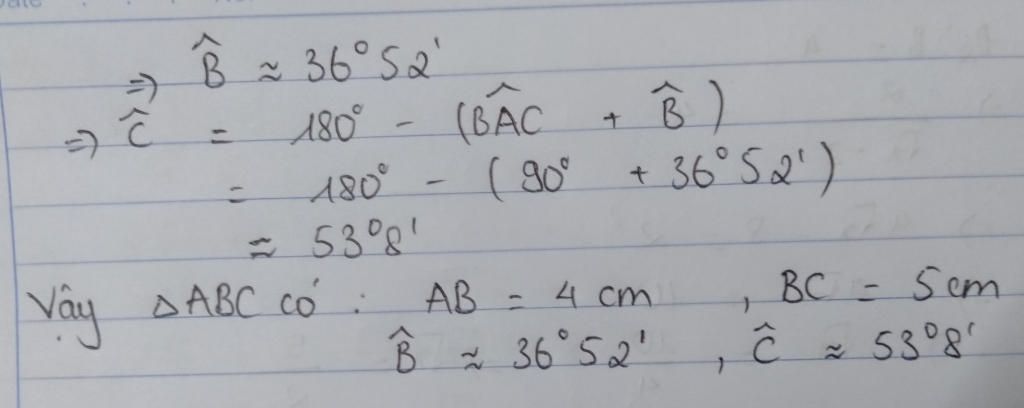 ⇒ B̂ ≈ 36°52'
⇒ Ĉ = 180° - (BÂC + B̂)
= 180° - (90° + 36°52')
≈ 53°8'
Vậy △ABC có : AB = 4 cm , BC = 5 cm
B̂ ≈ 36°52' , Ĉ ≈ 53°8'